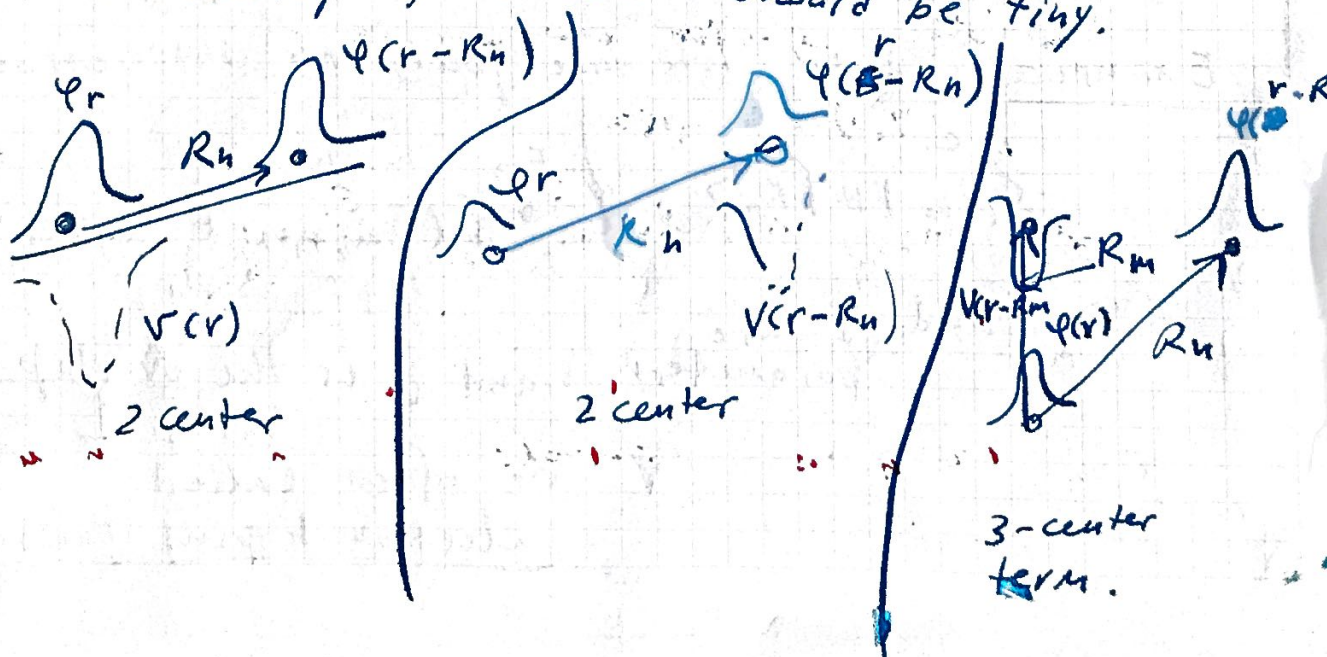 be tiny.
φr
Rn
φ(r-Rn)
V(r)
2 center
φr
Rn
φ(r-Rn)
V(r-Rn)
2 center
Rm
V(r-Rm
φ(r)
Rn
3-center
term.